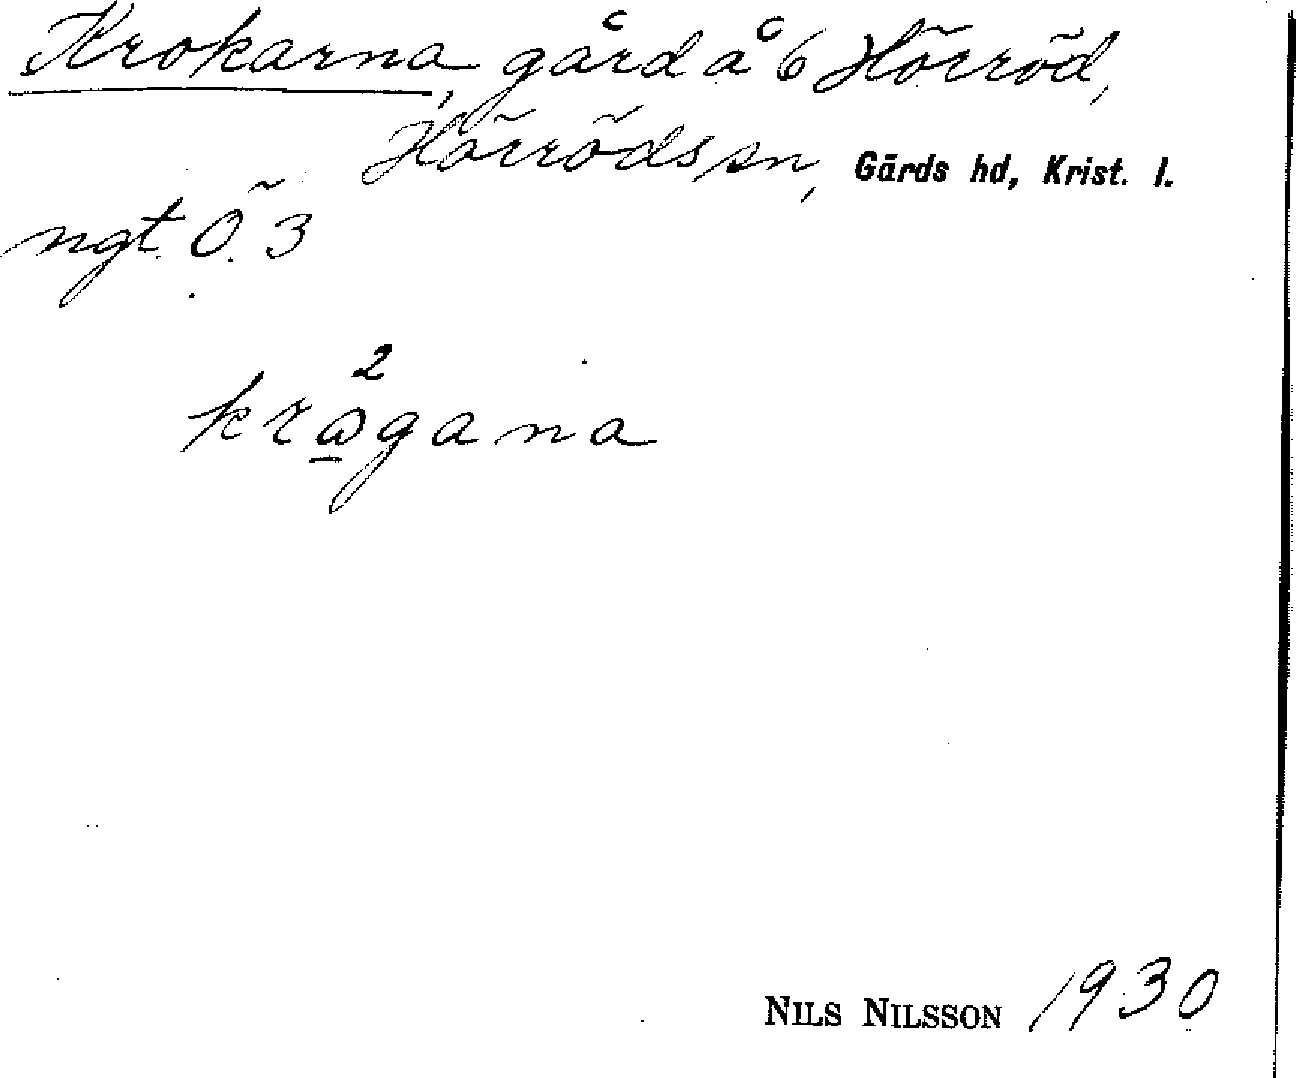 Krokarna, gård å 6 Hörröd,
Hörröds sn, Gärds hd, Krist. l.
ngt. Ö. 3
2
krågana
NILS NILSSON 1930